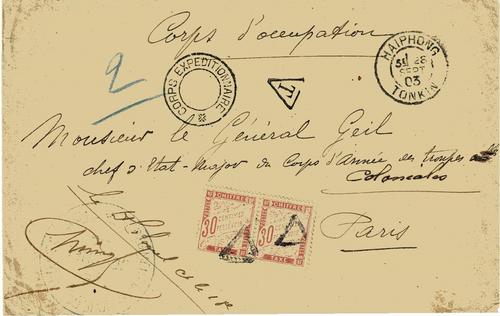 Corps d'occupation
HAIPHONG
28
SEPT
03
TONKIN
CORPS EXPEDITIONNAIRE
T
2
Monsieur le Général Geil
chef d'Etat-Major du Corps d'Armée des troupes
Coloniales
Paris
CHIFFRE CHIFFRE
30 30
CENTIMES
TAXE TAXE
le Colonel